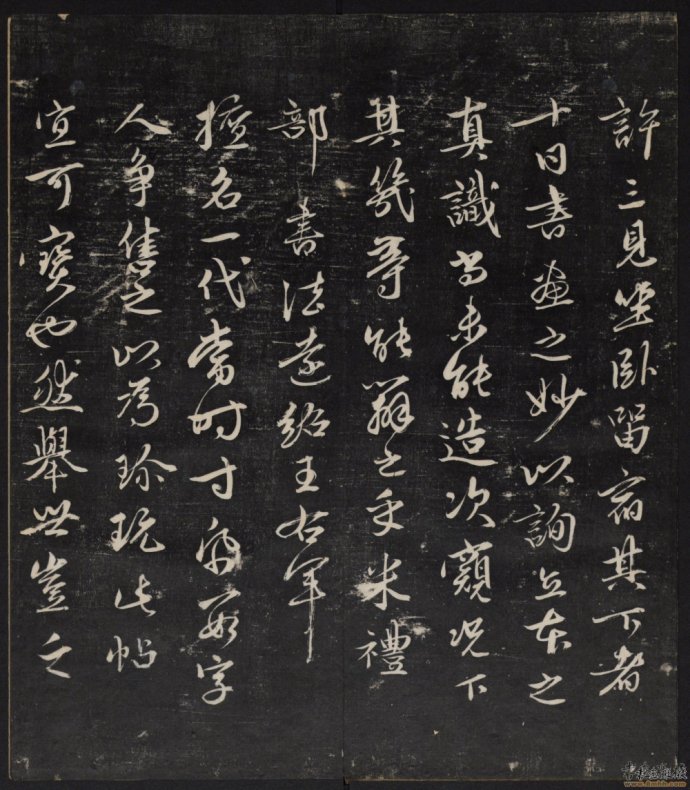 許三見坐卧留宿其下者
十日書畫之妙以詢立本之
真識尚未能造次窺況下
其幾等能辯之乎米禮
部書法遠紹王右軍
擅名一代當時寸紙數字
人爭售之以為珍玩此帖
宜可寶也然舉世豈乏
www.8mhh.com